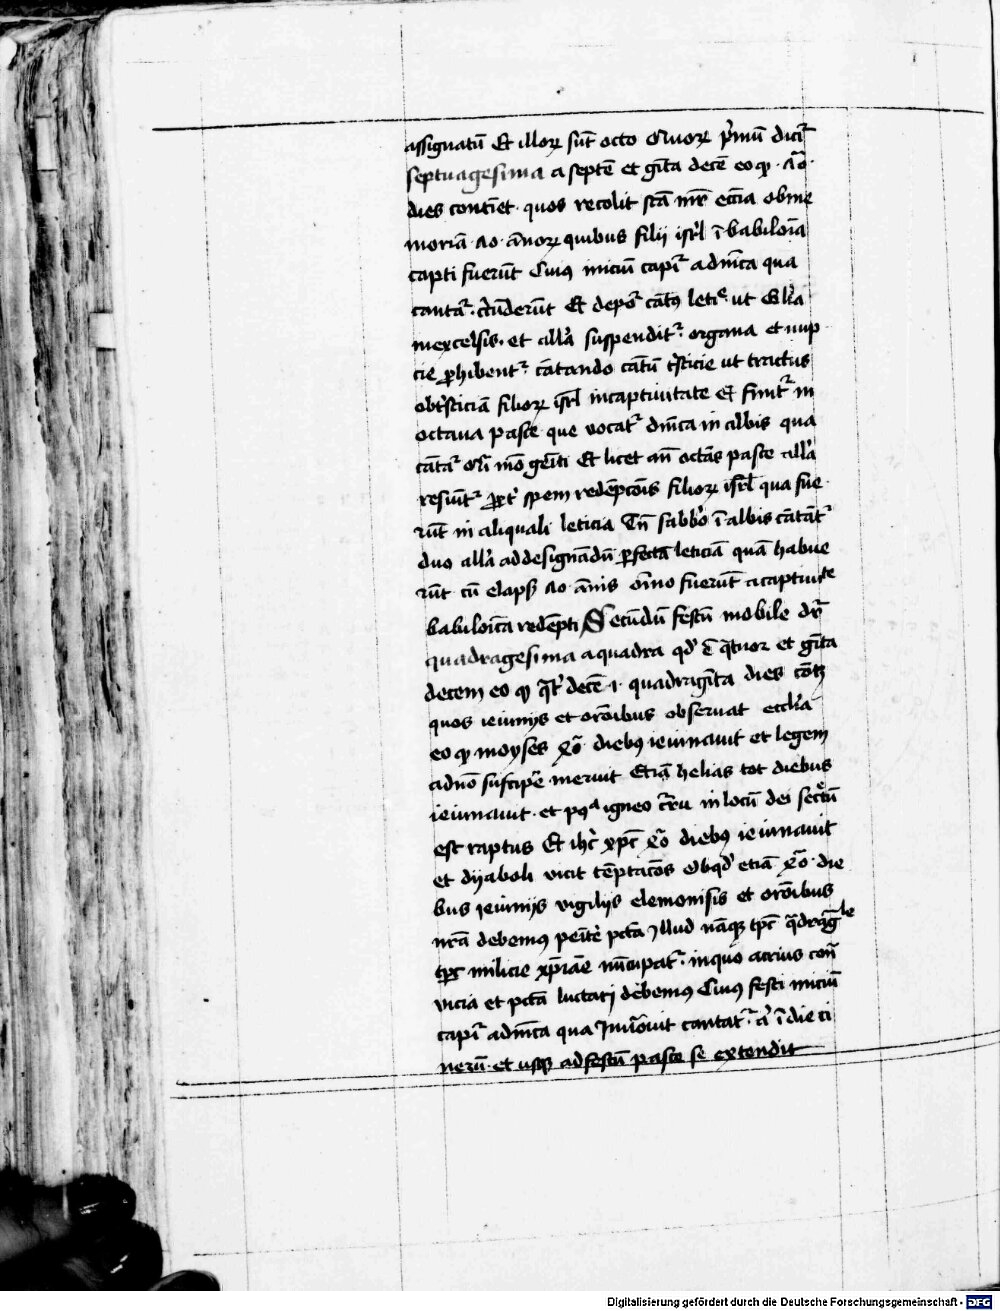 assignatū Et illoꝝ sūt octo Quoꝝ pͥmū dicīt᷑
septuagesima a septē et gīta decē eo qꝫ ·
dies contīet · quos recolit scā mr̄ ecc̄ia ob me
moriā · ānoꝝ quibus filii isrl̄ ī babiloīa
capti fuerūt Cuiꝯ iniciū capit᷑ a dnīca qua
cantat᷑ · c̄cūdederūt Et depōt᷑ cātꝯ letie · ut gl̄ia
in excelsis · et all̄a suspendit᷑ · organa et nup
cie ꝓhibent᷑ · cātando cātū tͥsticie ut tractus
ob tͥsticiā filioꝝ isrl̄ in captiuitate Et finit᷑ in
octaua pasce que vocat᷑ dnīca in albis qua
cātat᷑ Qͣi mō geīti Et licet an̄ octās pasce all̄a
resūit᷑ ꝓpt̄ spem redēpcōis filioꝝ isrl̄ qua fue
rūt in aliquali leticia Tn̄ sabbō ī albis cātāt᷑
duo all̄a ad designādū ꝑfectā leticiā quā habue
rūt cū elapẜ ānis oīno fuerūt a captiuitͣte
babiloīca redēpti Secūdū festū mobile dr̄
quadragesima a quadra qd̓ ē qͣtuor et gīta
decem eo qꝫ qͣt̓ decē ·i· quadragīta dies cōtꝫ
quos ieiunijs et orōibus obseruat eccl̄ia
eo qꝫ moyses xlͣ diebꝯ ieiunauit et legem
a dn̄o suscipe᷑ meruit Etiā helias tot diebus
ieiunauit · et pꝰqͣ igneo c̄rru in locū dei sec̄tū
est raptus Et ihc̄ xp̄c xlͣ diebꝯ ieiunauit
et dyaboli vicit tēptacōes Ob qd̓ etiā xlͣ · die
bus ieiunijs vigilijs elemonisis et orōibus
nr̄a debemꝯ peīte᷑ pctā Illud nāqꝫ tp̄c qͣdragͣle
tp̄c milicie xp̄iāe nūcupat᷑ · in quo acrius con̄
vicia et pctā luctari debemꝯ Cuiꝯ festi iniciū
capit᷑ a dnīca qua Inuōcuit cantat᷑ · aͥ ī die ci
nerū · et usqꝫ ad festū pasce se extendit
Digitalisierung gefördert durch die Deutsche Forschungsgemeinschaft - DFG